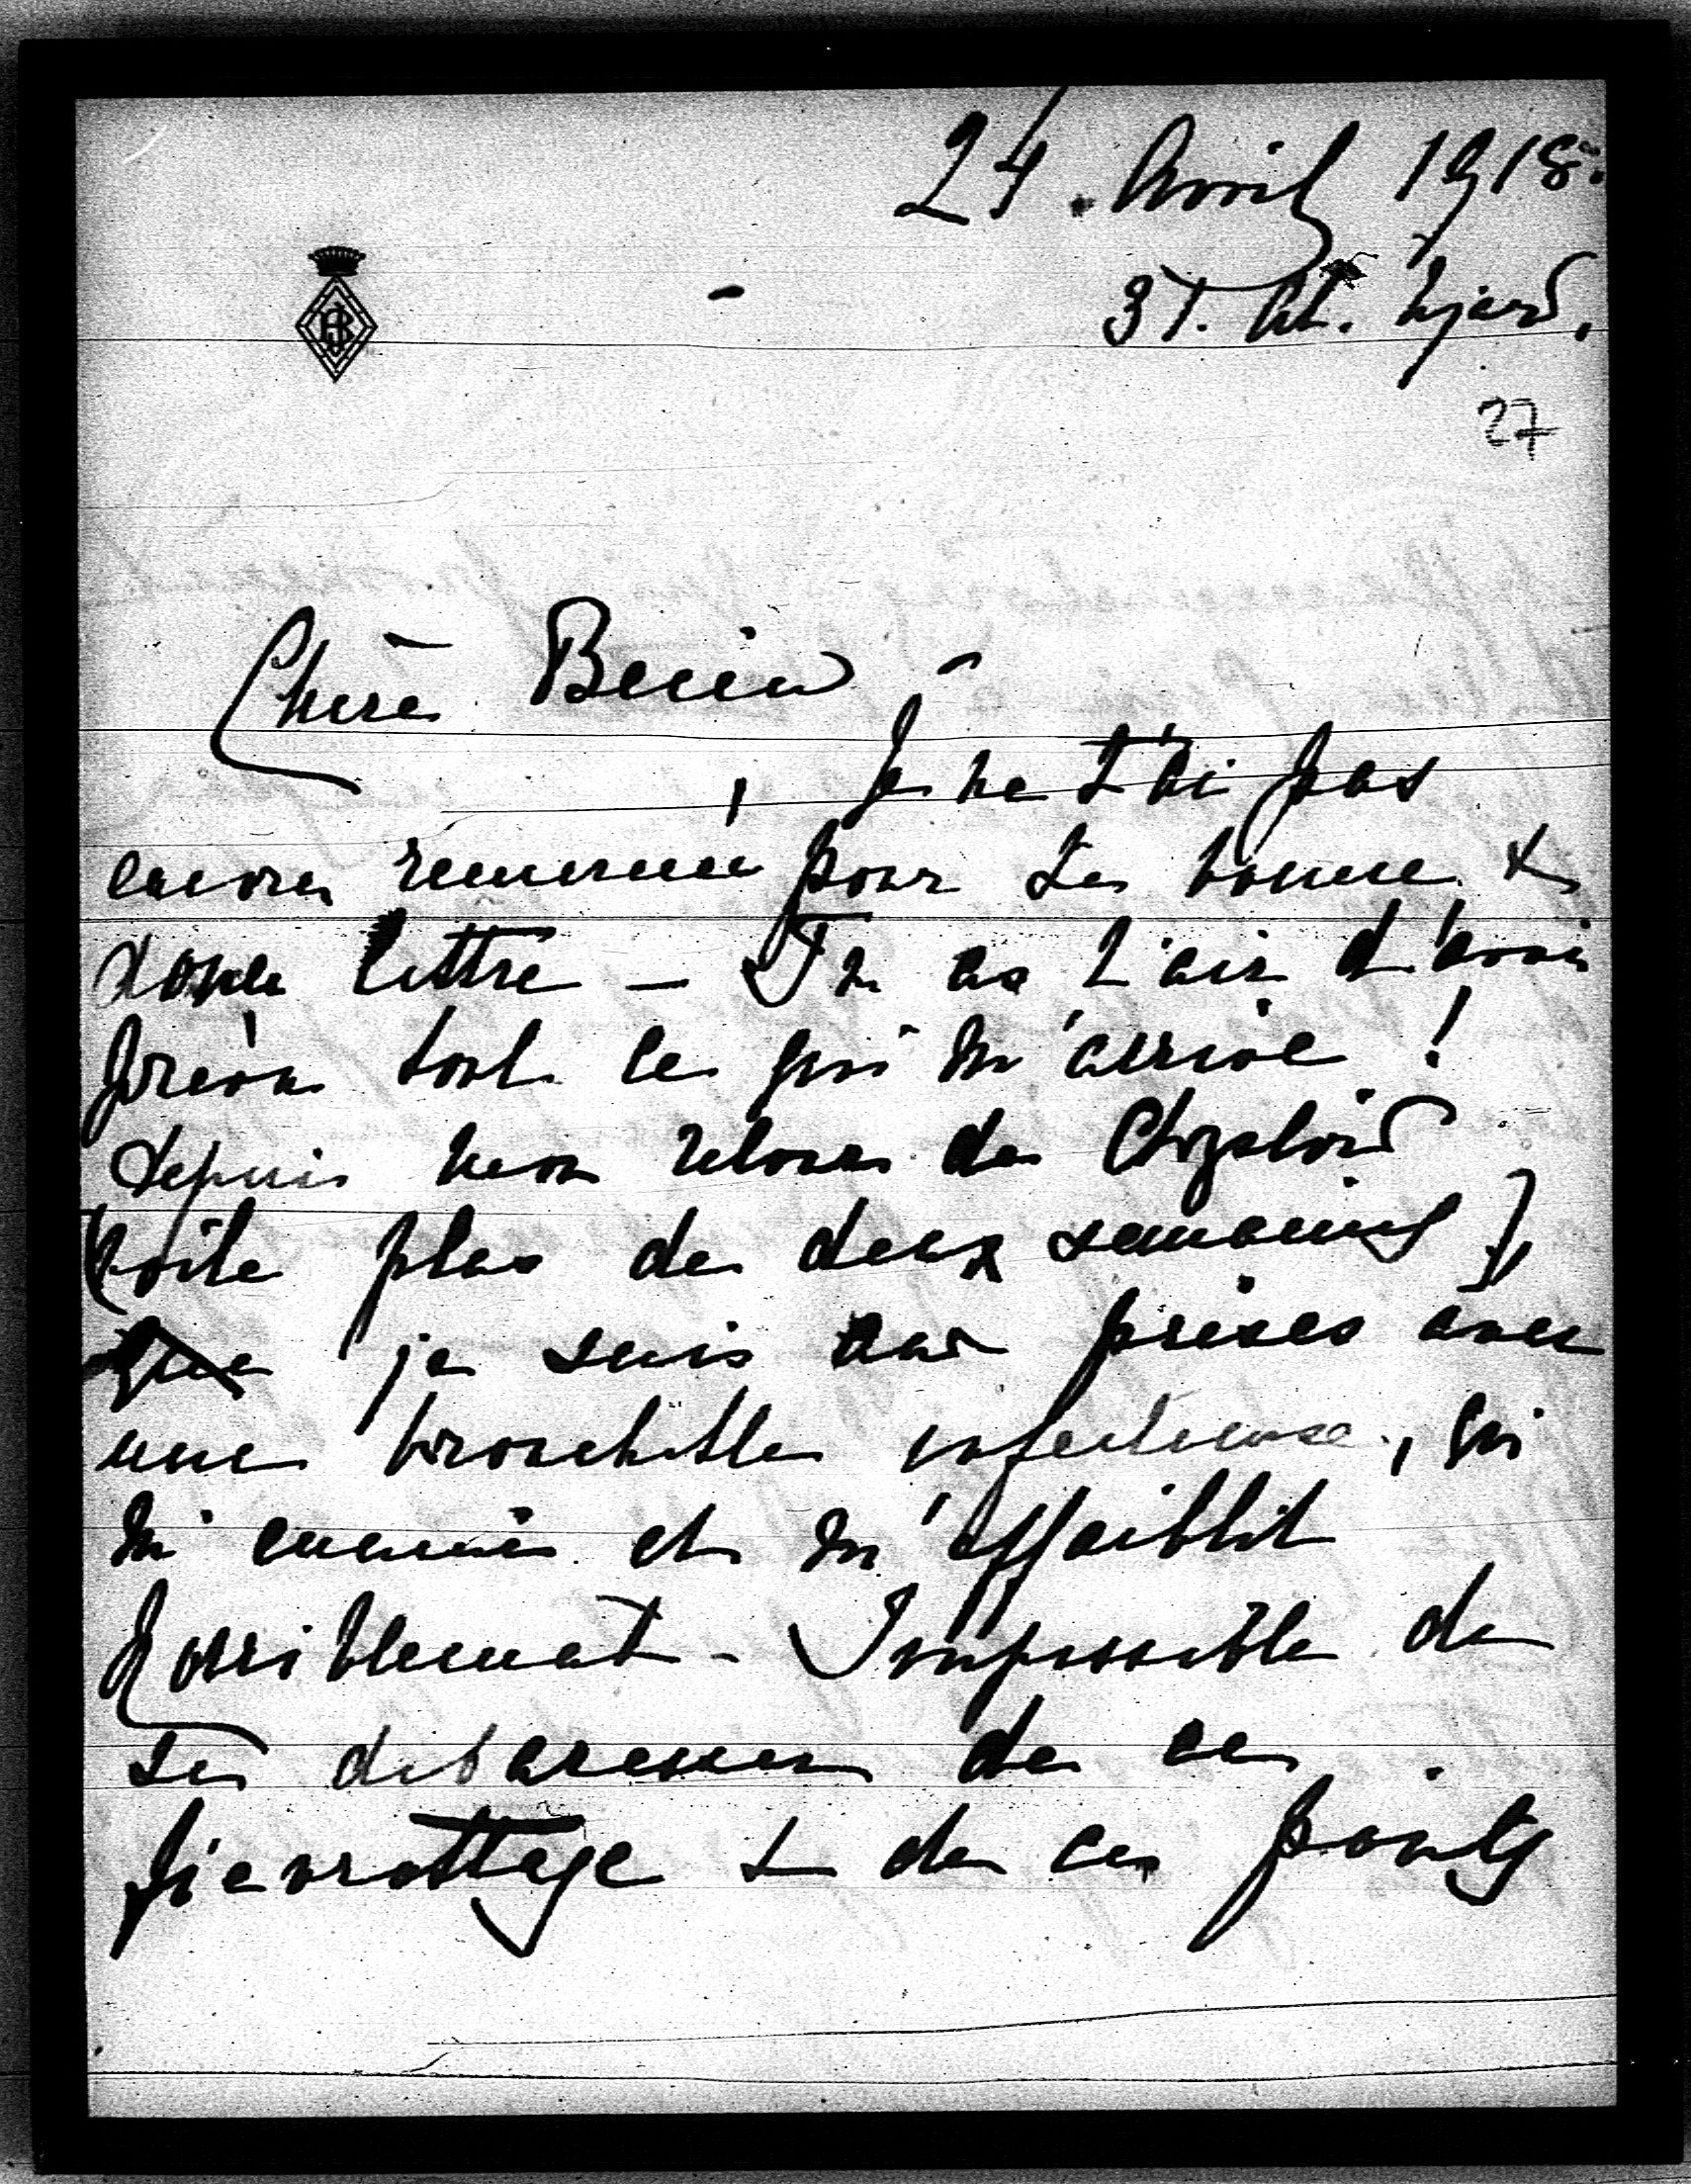 24. Avril 1918.
31. Ch. Ljard.
27
Chère
Je ne t'ai pas
encore remercié pour ta bonne &
douce lettre – Tu as l'air d'avoir
prévu tout ce qui m'arrive !
depuis mon retour de
(voila plus de deux semaines),
que je suis aux prises avec
une bronchitte infectieuse, qui
m'ennuie et m'affaiblit
horriblement – Impossible de
se débarasser de ce
fievrottage & de ces points